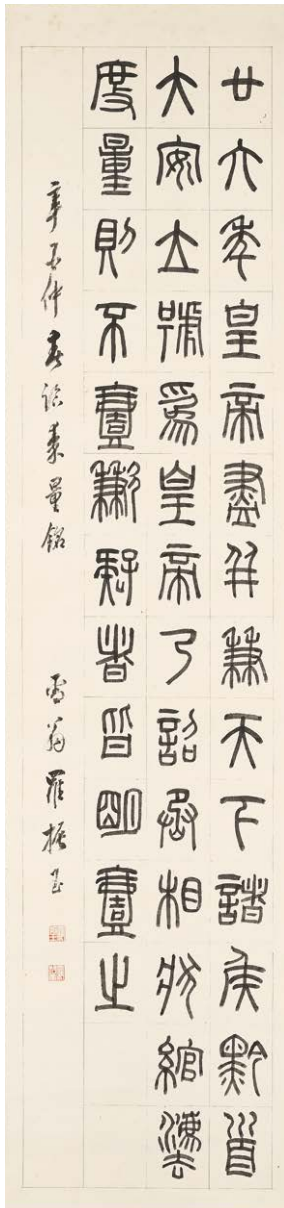 廿六年皇帝盡并兼天下諸侯黔首
大安立號為皇帝乃詔丞相狀綰灋
度量則不壹歉疑者皆明壹之
辛未仲春臨秦量銘
雪翁羅振玉